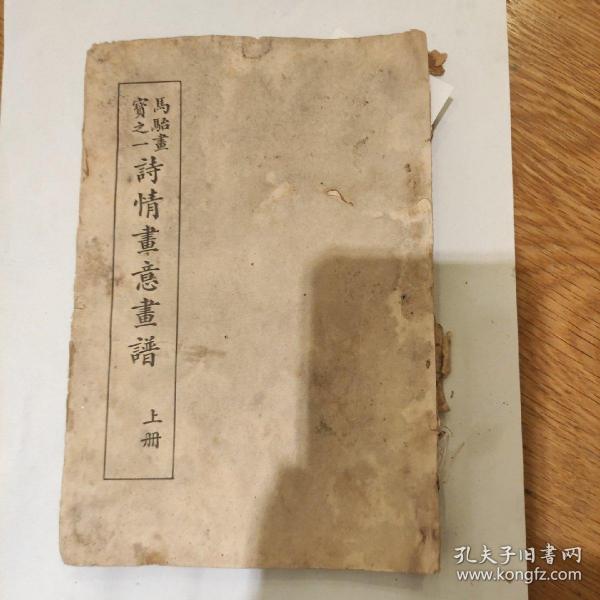 馬駘畫
寳之一
詩情畫意畫譜
上册
孔夫子旧書网
www.kongfz.com